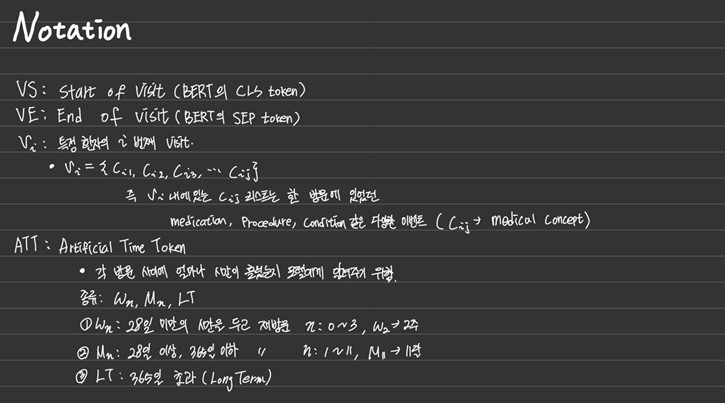 Notation
VS: Start of visit (BERT의 CLS token)
VE: End of visit (BERT의 SEP token)
Vi: 특정 환자의 i 번째 visit.
• Vi = { Ci1, Ci2, Ci3, ... Cij }
즉 Vi 내에 있는 Cij 리스트는 한 방문에 있었던
medication, Procedure, Condition 같은 다양한 이벤트 ( Cij → medical concept )
ATT: Artificial Time Token
• 각 방문 사이에 얼마나 시간이 흘렀는지 모델에게 알려주기 위함.
종류: Wn, Mn, LT
① Wn: 28일 미만의 시간을 두고 재방문 n: 0~3, W2 → 2주
② Mn: 28일 이상, 365일 이하 〃 n: 1~11, M11 → 11달
③ LT: 365일 초과 (Long Term)